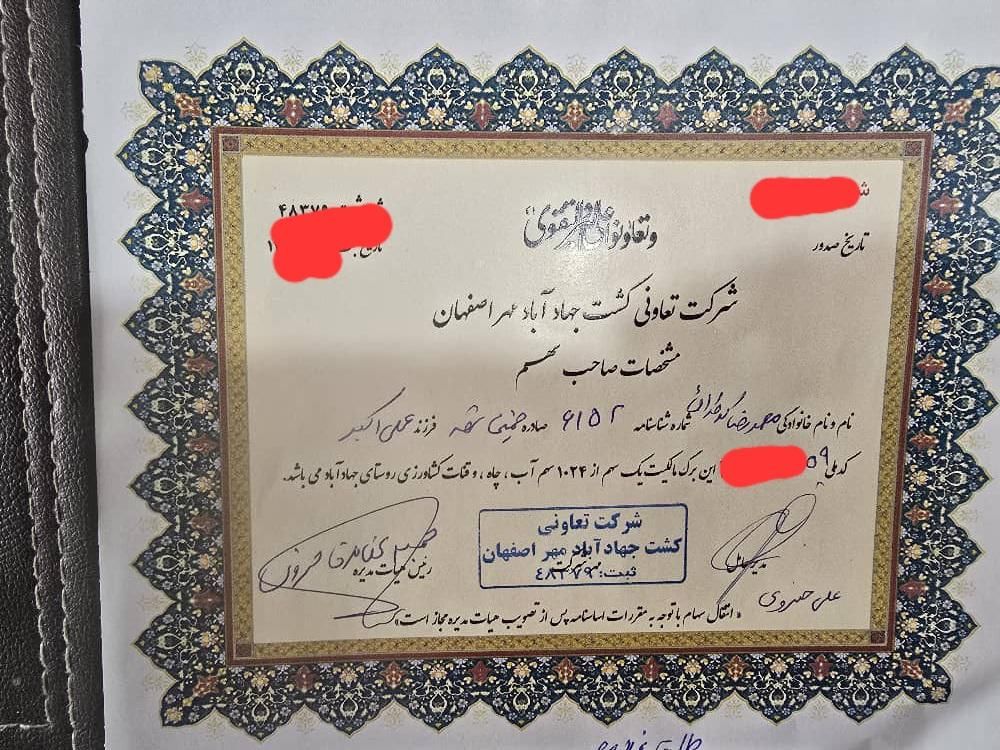 شماره ثبت: ۴۸۳۷۹
تاریخ
تاریخ صدور
وتعاونوا علی البر والتقوی
شرکت تعاونی کشت جهاد آباد مهر اصفهان
مشخصات صاحب سهم
نام و نام خانوادگی محمد رضا شماره شناسنامه ۶۱۵۲ صادره خمینی شهر فرزند علی اکبر
کد ملی این برگ مالکیت یک سهم از ۱۰۲۴ سهم آب ، چاه ، و قنات کشاورزی روستای جهاد آباد می باشد.
مدیر عامل
علی خسروی
شرکت تعاونی
کشت جهاد آباد مهر اصفهان
ثبت: ۴۸۳۷۹
رئیس هیات مدیره
« انتقال سهام با توجه به مقررات اساسنامه پس از تصویب هیات مدیره مجاز است»